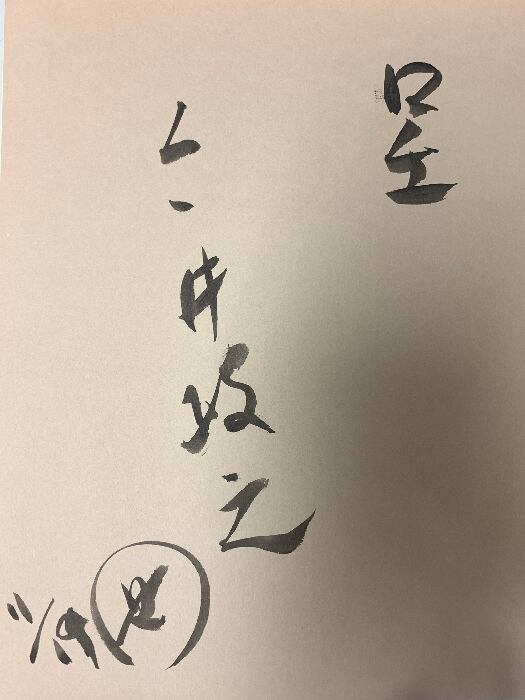 呈
今井政之